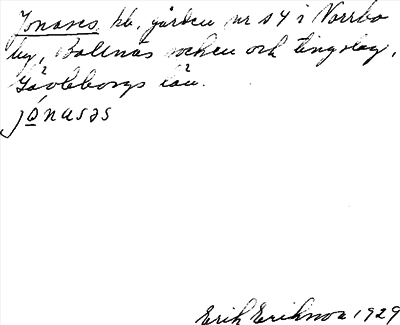 Jonases hb. gården nr 54 i Norrbo
by, Bollnäs socken och tingslag,
Gävleborgs län.
jónasəs
Erik Erikson 1929